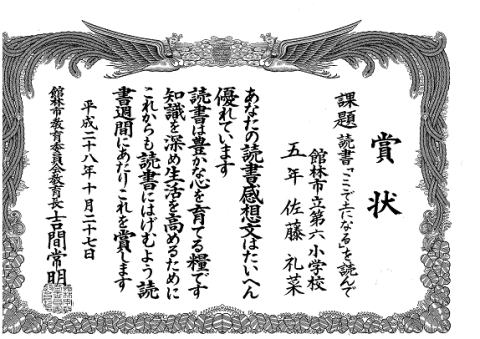 賞状
課題 読書「ここで土になる」を読んで
館林市立第六小学校
五年 佐藤礼菜
あなたの読書感想文はたいへん
優れています
読書は豊かな心を育てる糧です
知識を深め生活を高めるために
これからも読書にはげむよう読
書週間にあたりこれを賞します
平成二十八年十月二十七日
館林市教育委員会教育長 吉間常明